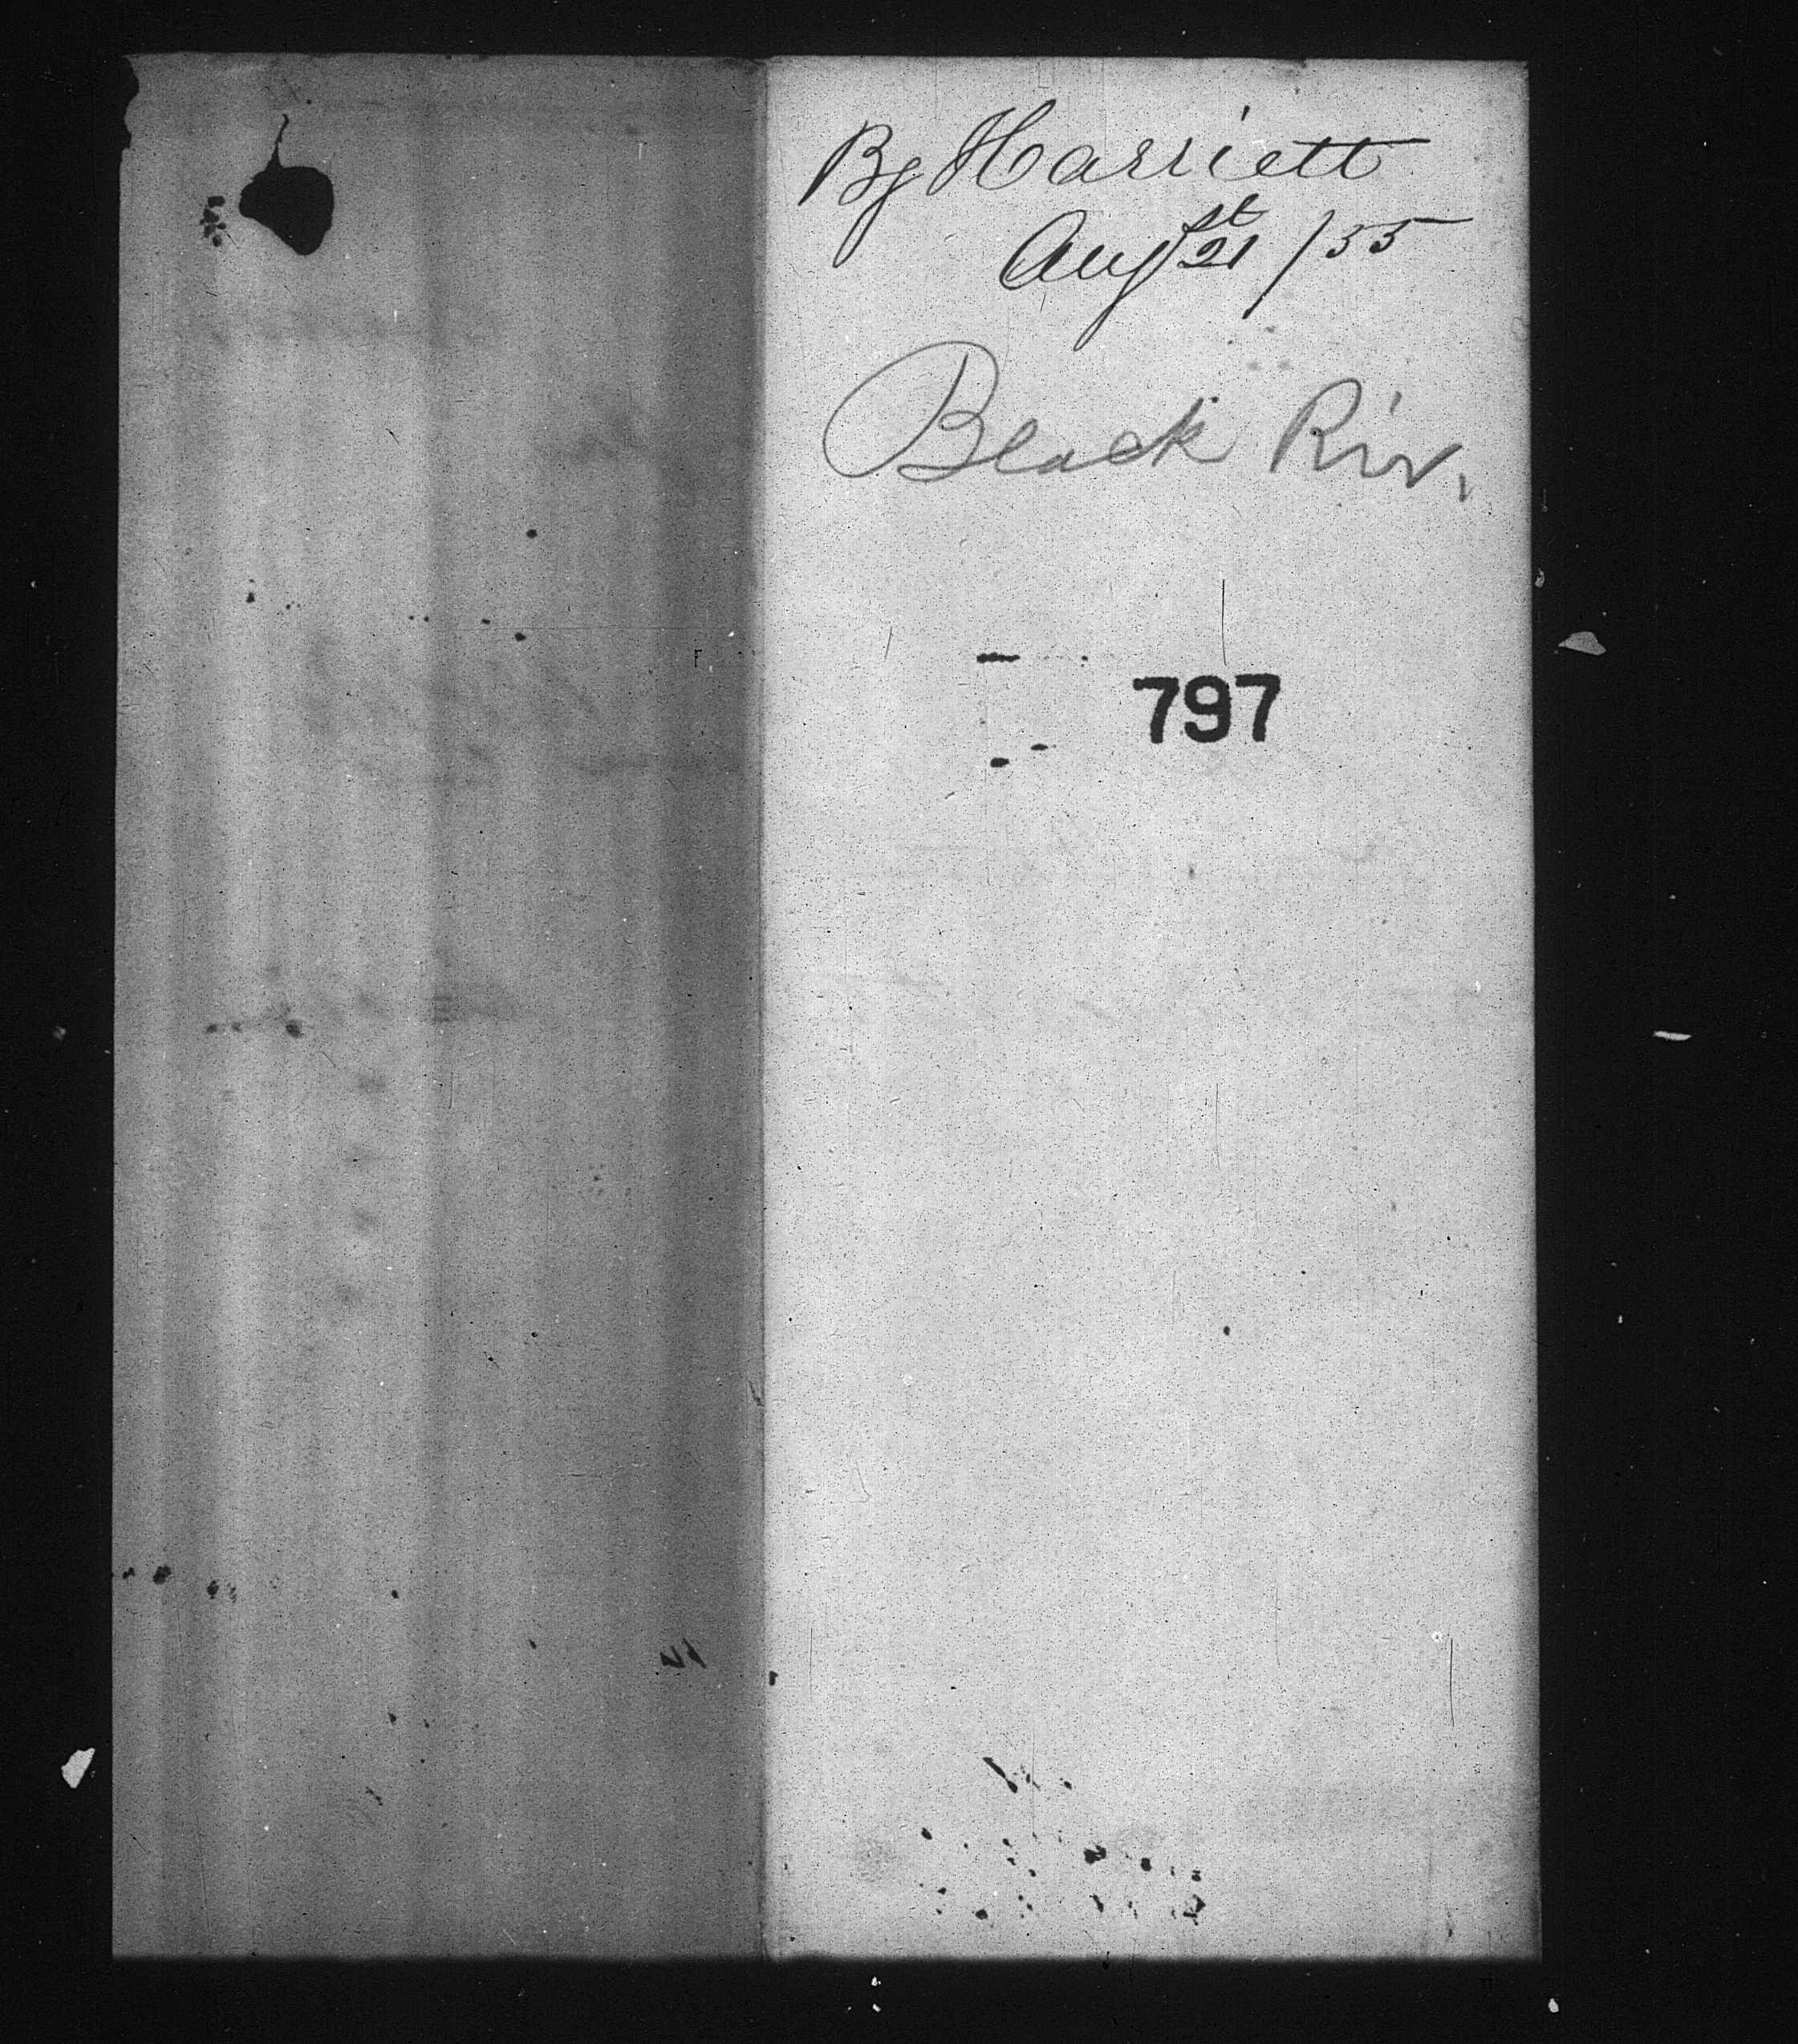 Bg Harriett
Augst 21 /55
Black Riv.
797